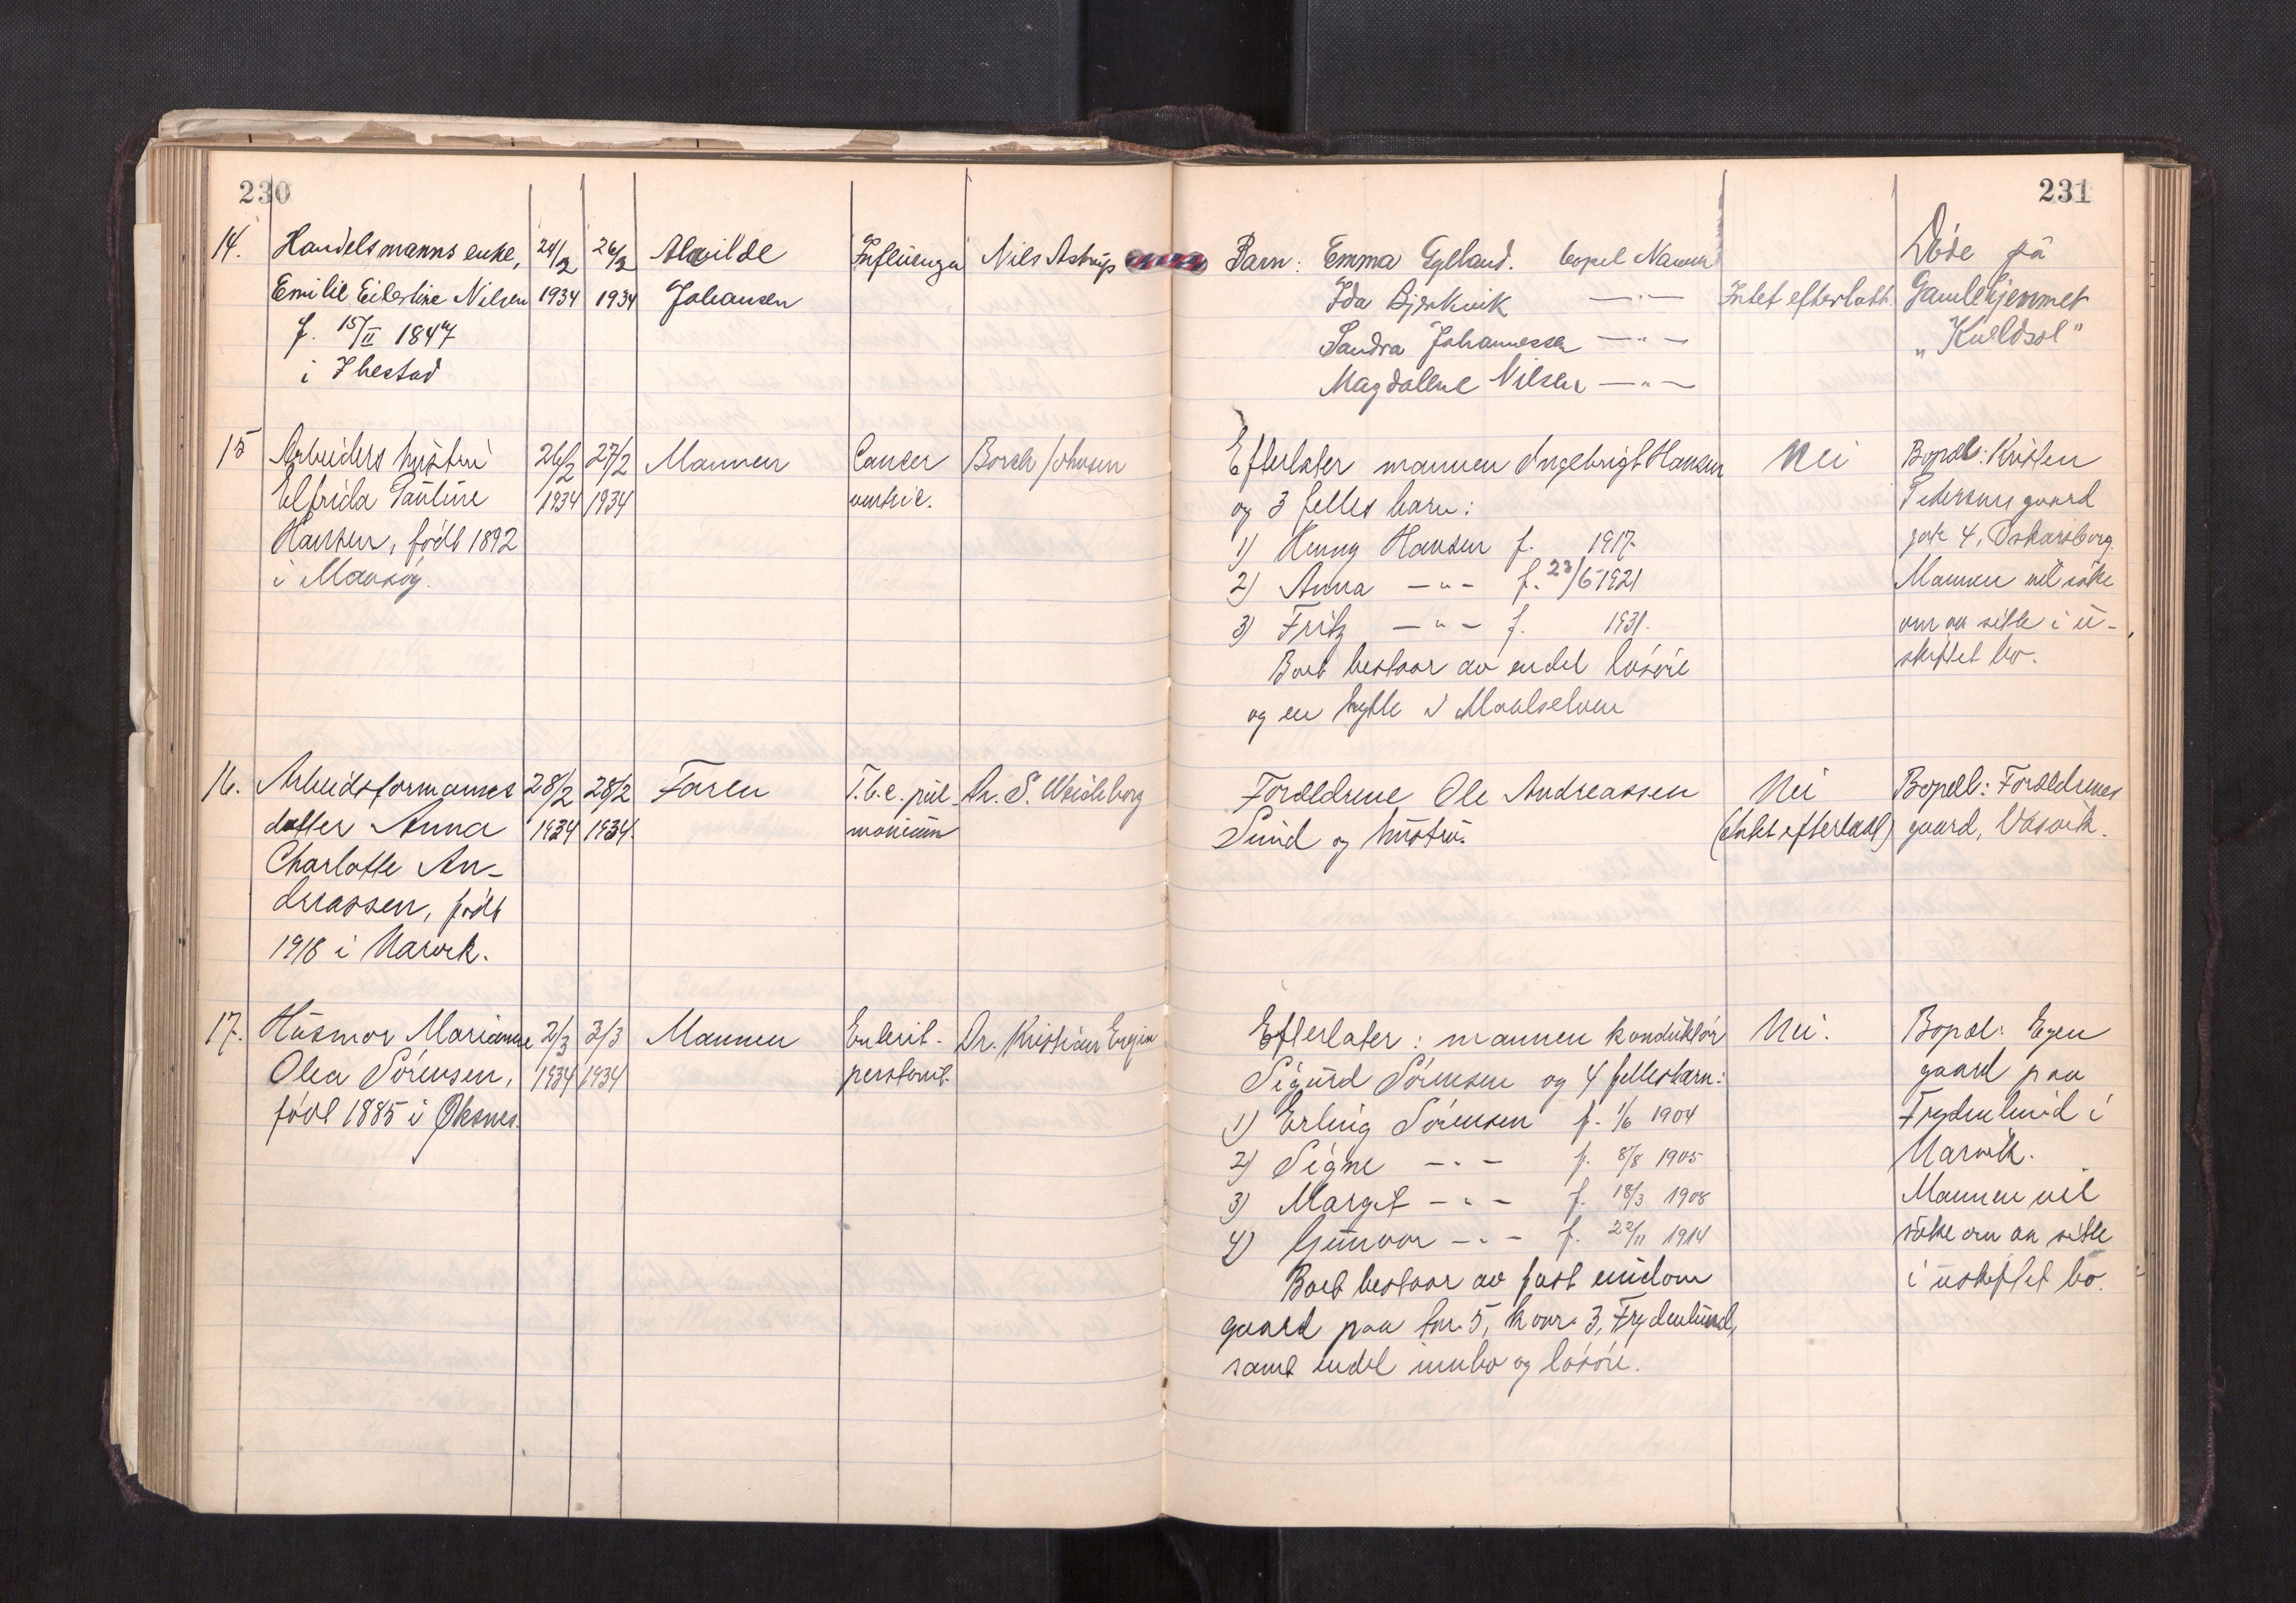 230
231
14. Handelsmanns enke, 24/2 26/2 Alvilde Influenza Nils Astrup Barn: Emma Gylland. bopel Narvik Døde på
Emilie Eilertine Nilsen 1934 1934 Johansen Ida Bjerkvik —"— Intet efterlatt. Gamlehjemmet
f. 15/II 1847 Sandra Johannessen —"— „Kveldsol"
i Ibestad Magdalene Nilsen —"—
15 Arbeiders hustru 26/2 27/2 Mannen Cancer Borch Johnsen Efterlater mannen Ingebrigt Hansen Nei Bopæl: Kristen
Elfrida Pauline 1934 1934 og 3 felles barn: Pedersens gaard
Hansen, født 1892 1) Henny Hansen f. 1917 gate 4, Oskarsborg.
i Maasøy. 2) Anna —"— f. 23/5 1921 Mannen vil søke
3) Fritz —"— f. 1931. om aa sitte i u-
Boet bestaar av endel løsøre skiftet bo.
og en hytte i Maalselven
16. Arbeidsformannes 28/2 28/2 Faren T.b.c. pul- Dr. S. Weideborg Forældrene Ole Andreassen Nei Bopæl: Forældrenes
datter Anna 1934 1934. monum Sund og hustru. (Intet efterladt) gaard,
Charlotte An-
dreassen, født
1918 i Narvik.
17. Husmor Marianne 2/3 3/3 Mannen Enterit- Dr. Kristian Efterlater: mannen konduktør Nei. Bopæl: Egen
Olea Sørensen, 1934 1934 Sigurd Sørensen og 4 fellesbarn: gaard paa
født 1885 i Øksnes. 1) Erling Sørensen f. 1/6 1904 Frydenlund i
2) Signe —"— f. 8/8 1905 Narvik.
3) Margit —"— f. 18/3 1908 Mannen vil
4) Gunvor —"— f. 22/11 1914 søke om aa sitte
Boet bestaar av fast eiendom i uskiftet bo.
gaard paa tm. 5, kvar. 3, Frydenlund,
samt endel innbo og løsøre.